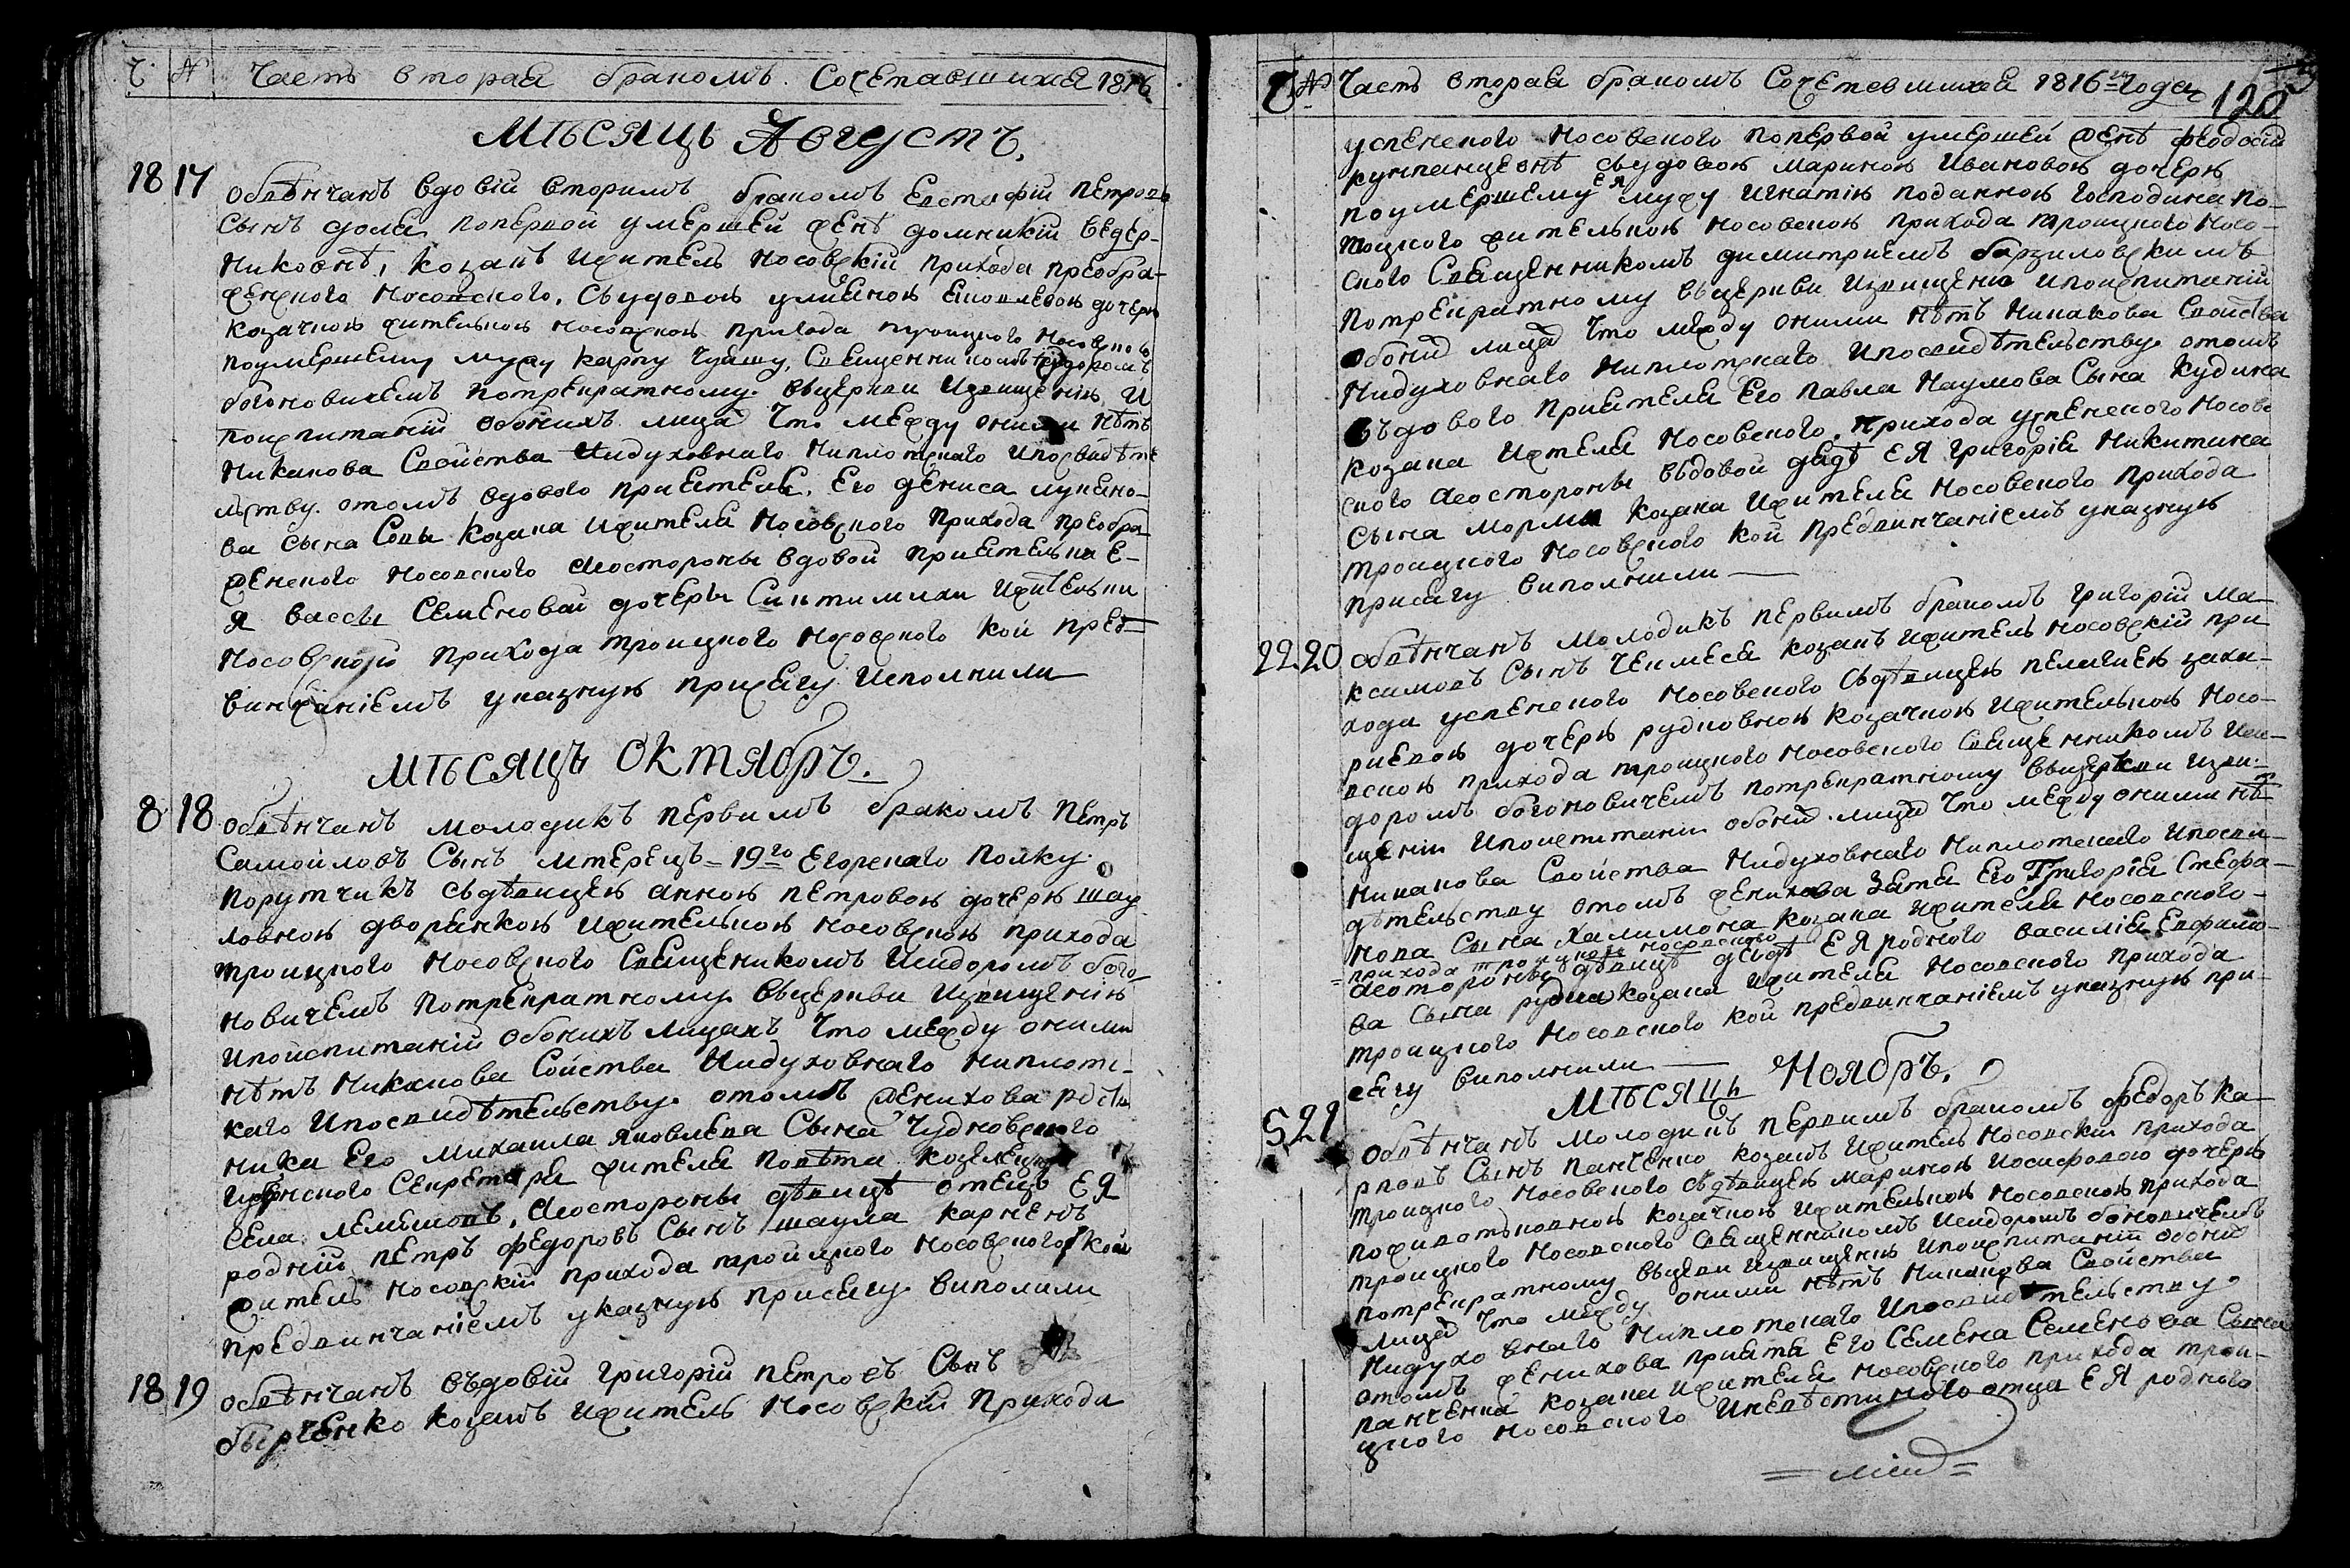 Ч. № Часть вторая бракомъ Сочетавшихся 1816
Мѣсяцъ Августъ.
18 17 обвѣнчанъ вдовій вторимъ бракомъ Евстафій Петровъ
Сынъ поперво́й умершей женѣ домникіи Ведер-
никовнѣ, козакъ ижитель Носовскій прихода преобра-
женского Носовского, Съудовою улияною дочерю
козачкою жителькою Носовскою прихода троицкого Носовского
поумершему мужу карпу Чуяшу, Священникомъ Ѳедоромъ
богоновичемъ потрекратному вьцеркви Извищенію И
поиспитаніи обоихъ лицъ Что между оними нѣтъ
Никакова Свойства Нидуховнаго Ниплотскаго ипосвидѣте
льству отомъ вдового приятеля, Его дениса лукяно-
ва сына Совы козака ижителя Носовского прихода преобра
женского Носовского Аостороны вдовой приятелька Е-
я вассы Семеновой дочеры ижительки
Носовского прихода троицкого Носовского кои пред-
винчаніемъ указную присягу исполнили
Мѣсяцъ Октябръ.
8 18 обвѣнчанъ молодикъ первимъ бракомъ Петръ
Самойловъ Сынъ 19го Егорскаго Полку
Порутчикъ сьдѣвицею анною Петровою дочерю шау
ловною дворянкою ижителькою Носовскою прихода
троицкого Носовского Священикомъ Исидоромъ бого-
новичемъ потрекратному вьцеркви Извищенію
ипоиспитаніи обоихъ лицахъ Что между оними
нѣтъ Никакова Сойства Нидуховнаго ниплотс-
каго ипосвидѣтельству отомъ Женихова
ника Его михаила яковлева Сына Чудновского
Секретаря жителя повѣта
Села лемешовъ, Аостороны дѣвицѣ отецъ ЕЯ
родній Петръ федоровъ Сынъ шаула
житель Носовскій прихода троицкого Носовского кои
предвинчаніемъ указную присягу виполнили
18 19 обвѣнчанъ вьдовій григорій петровъ Сынъ
козакъ ижитель Носовскій Прихода
Ч. № Часть вторая бракомъ Сочетавшихся 1816го года 120
успенского Носовского поперво́й умершей женѣ феодосіи
сьудовою мариною Ивановою дочерю
поумершему ЕЯ мужу игнатію поданною господина По-
тоцкого жителькою Носовскою прихода троицкого Носо-
вского Священникомъ димитриемъ
потрекратному вьцеркви Извищенію ипоиспитаніи
обоид лицъ Что между оними нѣтъ Никакова Свойства
Нидуховнаго Ниплотскаго ипосвидѣтельству отомъ
вьдового приятеля Его Павла Наумова Сына
козака ижителя Носовского, прихода успенского Носовс
кого Аостороны вьдовой дядѣ ЕЯ григорія Никитина
сына козака ижителя Носовского прихода
троицкого Носовского кои предвинчаніемъ указную
присягу виполнили
22 20 обвѣнчанъ молодикъ первимъ бракомъ григорій ма-
ксимовъ Сынъ козакъ ижитель Носовскій при
хода успенского Носовского Сьдѣвицею пелагиею заха-
риевою дочерю рудковною козачкою ижителькою Носо-
вскою прихода троицкого Носовского Священникомъ Иси-
доромъ богоновичемъ потрекратному вьцеркви изви-
щеніи ипоиспитаніи обоид лицъ Что между оними нѣт
Никакова Свойства Нидуховнаго Ниплотскаго ипосви-
дѣтельству отомъ женихова Зятя Его Григорія Стефа-
нова Сына Халимона козака ижителя Носовского
прихода троицкого Носовского
Аостороны дѣвицѣ дядѣ ЕЯ родного василія Евфимо-
ва сына козака ижителя Носовского прихода
троицкого Носовского кои предвинчаніемъ указную при-
сягу виполнили
Мѣсяцъ Ноябръ.
5 21 обвѣнчанъ молодикъ первимъ бракомъ федоръ ка-
рповъ Сынъ панченко козакъ ижитель Носовскій прихода
троицкого Носовского сьдѣвицею мариною Иосифовою дочерю
козачкою ижителькою Носовскою прихода
троицкого Носовского Священникомъ Исидоромъ богоновичемъ
потрекратному извищенію ипоиспитаніи обоид
лицъ Что между оними нѣтъ Никакова Свойства
Нидуховнаго Ниплотскаго ипосвидѣтельству
отомъ женихова Его Семена Семенова Сына
панченка козака ижителя Носовского прихода трои-
цкого Носовского отца ЕЯ родного